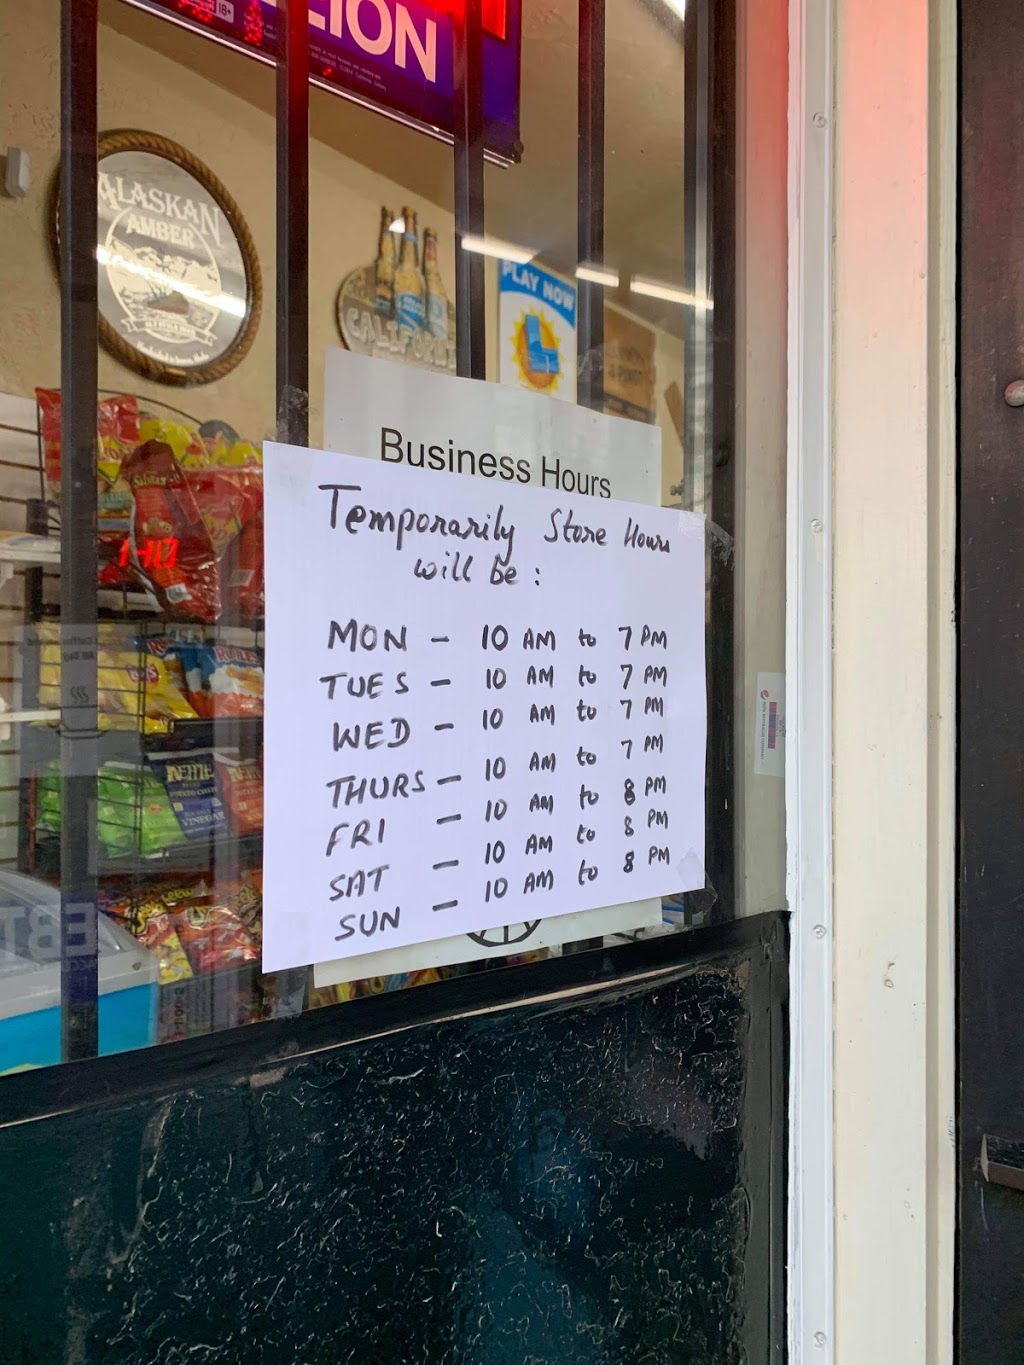 LION
18+
ALASKAN
AMBER
PLAY NOW
Business Hours
Temporarily Store Hours
will be :
MON - 10 AM to 7 PM
TUES - 10 AM to 7 PM
WED - 10 AM to 7 PM
THURS - 10 AM to 7 PM
FRI - 10 AM to 8 PM
SAT - 10 AM to 8 PM
SUN - 10 AM to 8 PM
KETTLE
VINEGAR
EBT